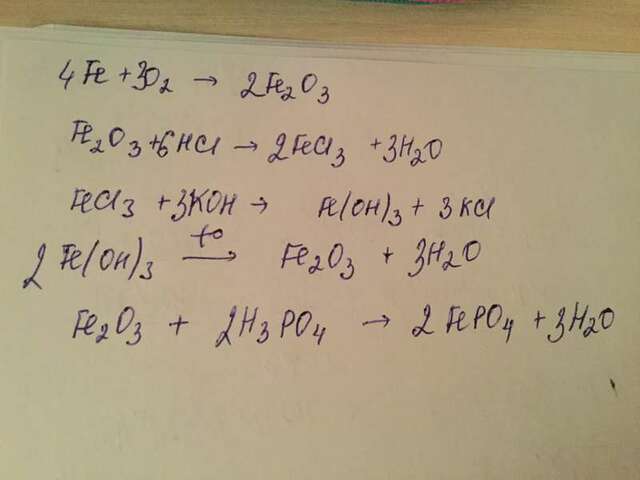 4Fe + 3O₂ → 2Fe₂O₃
Fe₂O₃ + 6HCl → 2FeCl₃ + 3H₂O
FeCl₃ + 3KOH → Fe(OH)₃ + 3KCl
2Fe(OH)₃ t° → Fe₂O₃ + 3H₂O
Fe₂O₃ + 2H₃PO₄ → 2FePO₄ + 3H₂O